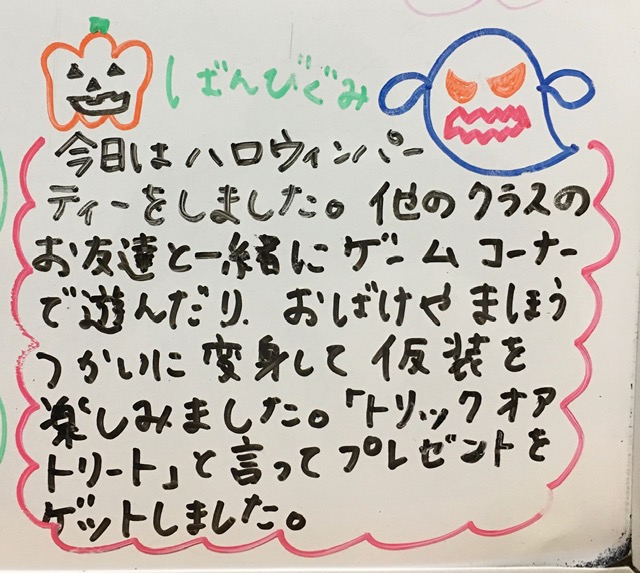 じぜんびぐみ
今日はハロウィンパー
ティーをしました。他のクラスの
お友達と一緒にゲームコーナー
で遊んだり、おばけやまほう
つかいに変身して仮装を
楽しみました。「トリックオア
トリート」と言ってプレゼントを
ゲットしました。